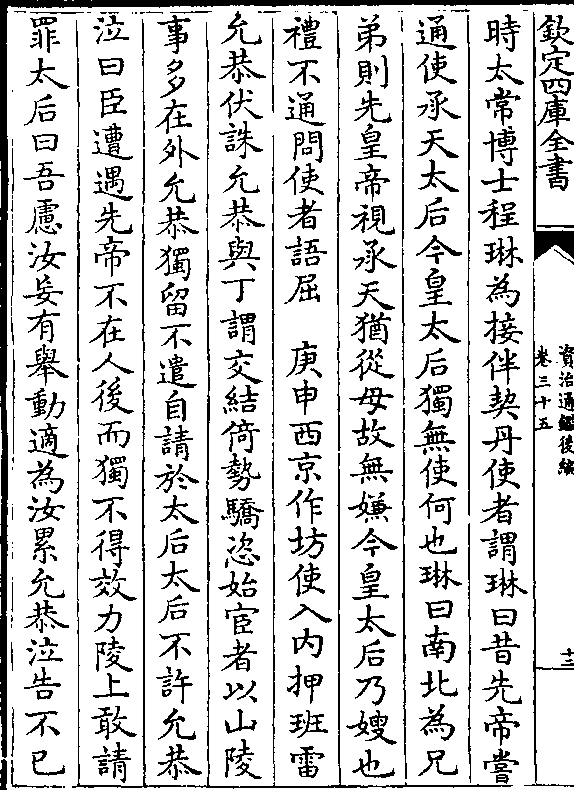 欽定四庫全書
資治通鑑後編
卷三十五
十三
時太常博士程琳為接伴契丹使者謂琳曰昔先帝嘗
通使承天太后今皇太后獨無使何也琳曰南北為兄
弟則先皇帝視承天猶從母故無嫌今皇太后乃嫂也
禮不通問使者語屈　庚申西京作坊使入內押班雷
允恭伏誅允恭與丁謂交結倚勢驕恣始宦者以山陵
事多在外允恭獨留不遣自請於太后太后不許允恭
泣曰臣遭遇先帝不在人後而獨不得效力陵上敢請
罪太后曰吾慮汝妄有舉動適為汝累允恭泣告不已